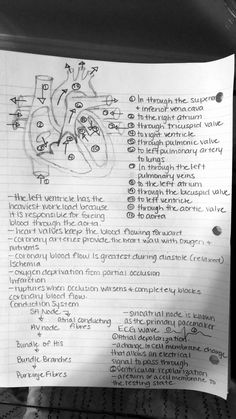 ① In through the superior
+ inferior vena cava
② to the right atrium
③ through tricuspid valve
④ to right ventricle
⑤ through pulmonic valve
⑥ to left pulmonary artery
to lungs
⑦ In through the left
pulmonary veins
⑧ to the left atrium
⑨ through the bicuspid valve
⑩ to left ventricle
⑪ through the aortic valve
⑫ to aorta
- the left ventricle has the
heaviest work load because it
is responsible for
blood through the aorta
- heart valves keep the blood flowing forward
- coronary arteries provide the heart wall with oxygen +
nutrients
- coronary blood flow is greatest during diastole (relaxed)
Ischemia
- oxygen deprivation from partial occlusion
Infarction
- ruptures when occlusion worsens + completely blocks
coronary blood flow
Conduction System
SA Node
atrial conducting
fibres
AV node
Bundle of His
Bundle Branches
Purkinje Fibres
- sinoatrial node is known
as the primary pacemaker
ECG wave
① Atrial depolarization
- change to cell membrane
that allows an electrical
signal to pass through
② Ventricular repolarization
- a return of a cell membrane to
the resting state